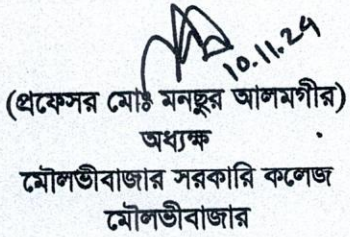 10.11.24
(প্রফেসর মোঃ মনছুর আলমগীর)
অধ্যক্ষ
মৌলভীবাজার সরকারি কলেজ
মৌলভীবাজার